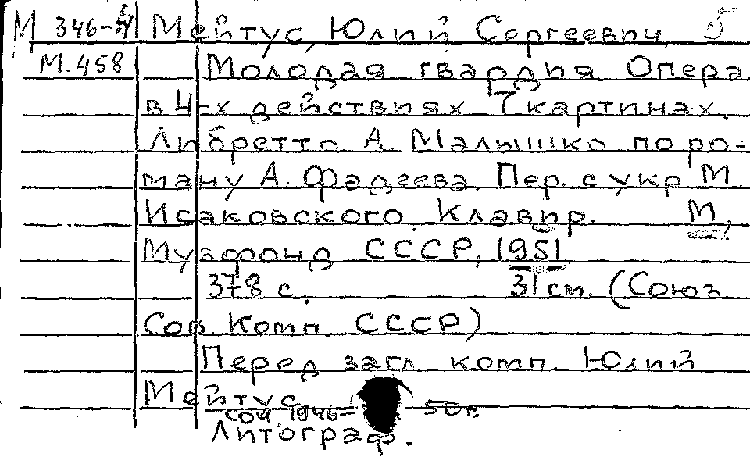 М 346-4 Мейтус, Юлий Сергеевич 5
М.458 Молодая гвардия Опера
в 4-х действиях 7 картинах.
Либретто А. Малышко по ро-
ману А. Фадеева. Пер. с укр М.
Исаковского. Клавир. М,
Музфонд СССР, 1951
378 с. 31 см. (Союз
Сов. Комп. СССР)
Перед загл. комп. Юлий
Мейтус
соч. 1946=
Литограф.